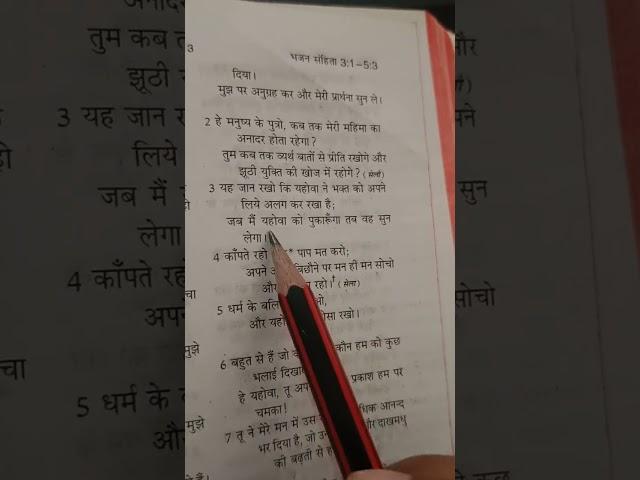 भजन संहिता 3:1–5:3
दिया।
मुझ पर अनुग्रह कर और मेरी प्रार्थना सुन ले।
2 हे मनुष्य के पुत्रो, कब तक मेरी महिमा का
अनादर होता रहेगा?
तुम कब तक व्यर्थ बातों से प्रीति रखोगे और
झूठी युक्ति की खोज में रहोगे? (सेला)
3 यह जान रखो कि यहोवा ने भक्त को अपने
लिये अलग कर रखा है;
जब मैं यहोवा को पुकारूँगा तब वह सुन
लेगा।
4 काँपते रहो * पाप मत करो;
अपने बिछौने पर मन ही मन सोचो
रहो। (सेला)
5 धर्म के
और रखो।
6 बहुत से हैं जो कौन हम को कुछ
भलाई
हे यहोवा, तू प्रकाश हम पर
चमका!
7 तू ने मेरे मन में उस आनन्द
भर दिया है, जो और दाखमधु
की बढ़ती से